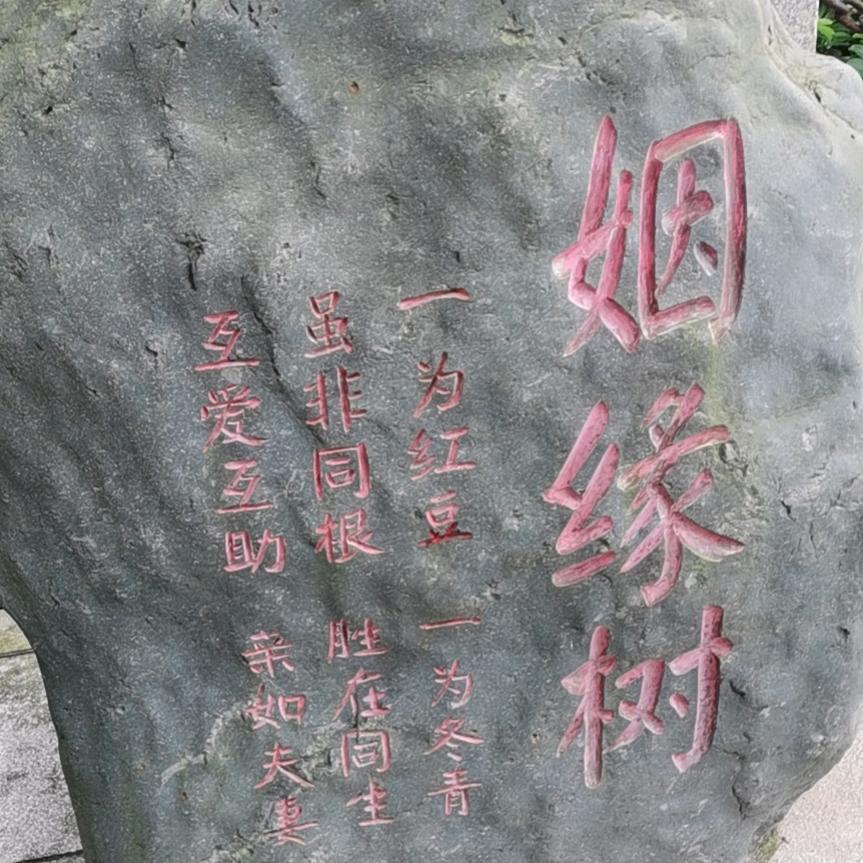 姻缘树
一为红豆 一为冬青
虽非同根 胜在同生
互爱互助 亲如夫妻